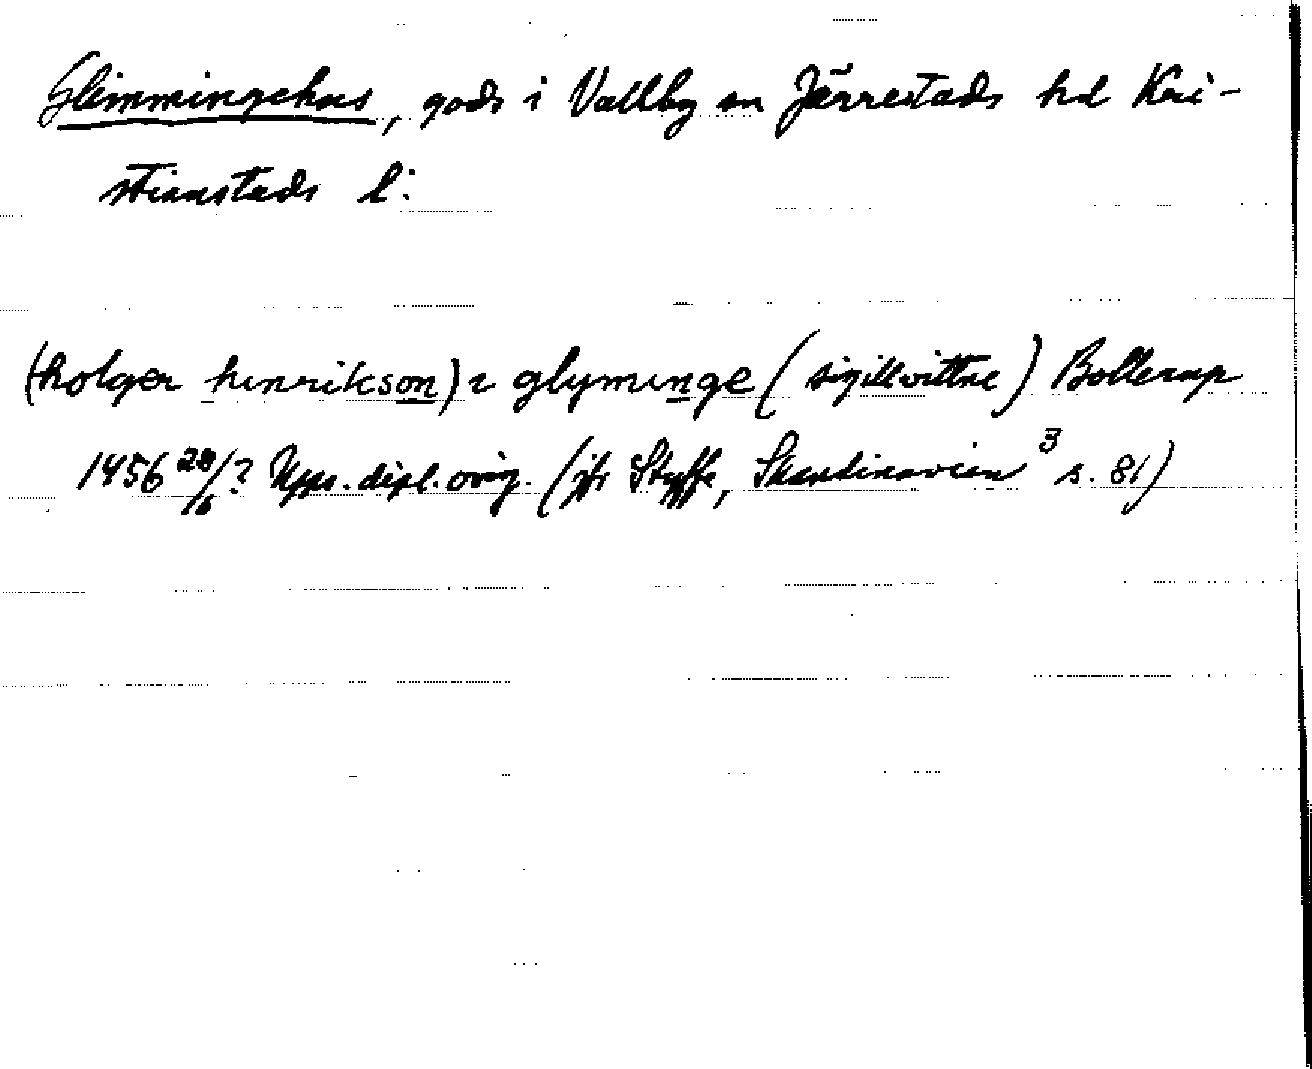 Glimmingehus, gods i Vallby sn Järrestads hd Kri-
stianstads l:
(holger henrikson) i glyminge (sigillvittne) Bollerup
1456 28/6? Upps. dipl. orig. (jfr Styffe, Skandinavien 3 s. 81)